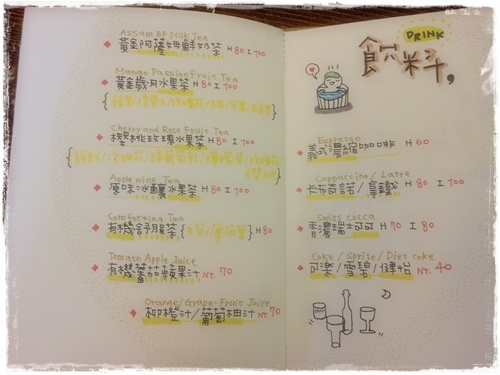 Assam BP Milk Tea
黃金阿薩姆鮮奶茶 H 80 I 100
Mango Passionfruit Tea
黃金歲月水果茶 H 80 I 100
Cherry and Rose Fruit Tea
櫻桃玫瑰水果茶 H 80 I 100
Apple wine Tea
原味冰釀水果茶 H 80 I 100
Comforting Tea
有機舒服茶 H 80
Tomato Apple Juice
有機蕃茄蘋果汁 NT. 70
Orange/Grape-Fruit Juice
柳橙汁/葡萄柚汁 NT. 70
DRINK
飲料,
Espresso
義式濃縮咖啡 H 60
Cappuccino / Latte
卡布奇諾/拿鐵 H 80 I 100
Swiss cocca
香濃瑞士可可 H 70 I 80
Coke / Sprite / Diet coke
可樂/雪碧/健怡 NT. 40